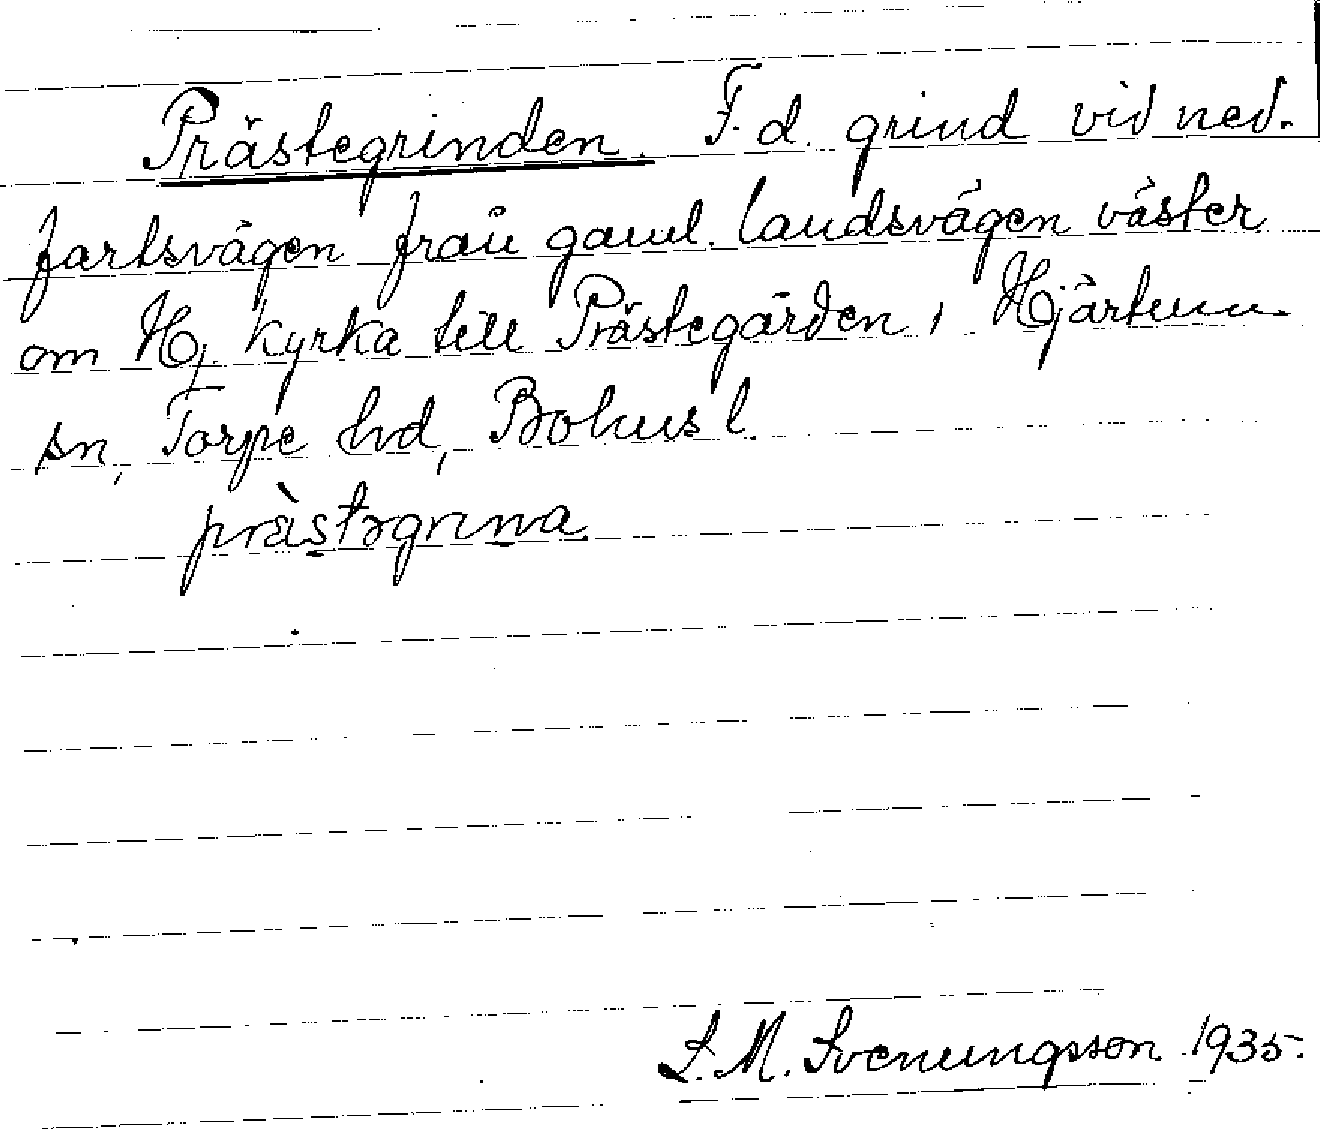 Prästegrinden. F.d. grind vid ned-
fartsvägen från gaml. landsvägen väster
om Hj. kyrka till Prästegården i Hjärtum
sn, Torpe hd, Bohusl.
prὰstəgrına
S. M. Svenungsson 1935.